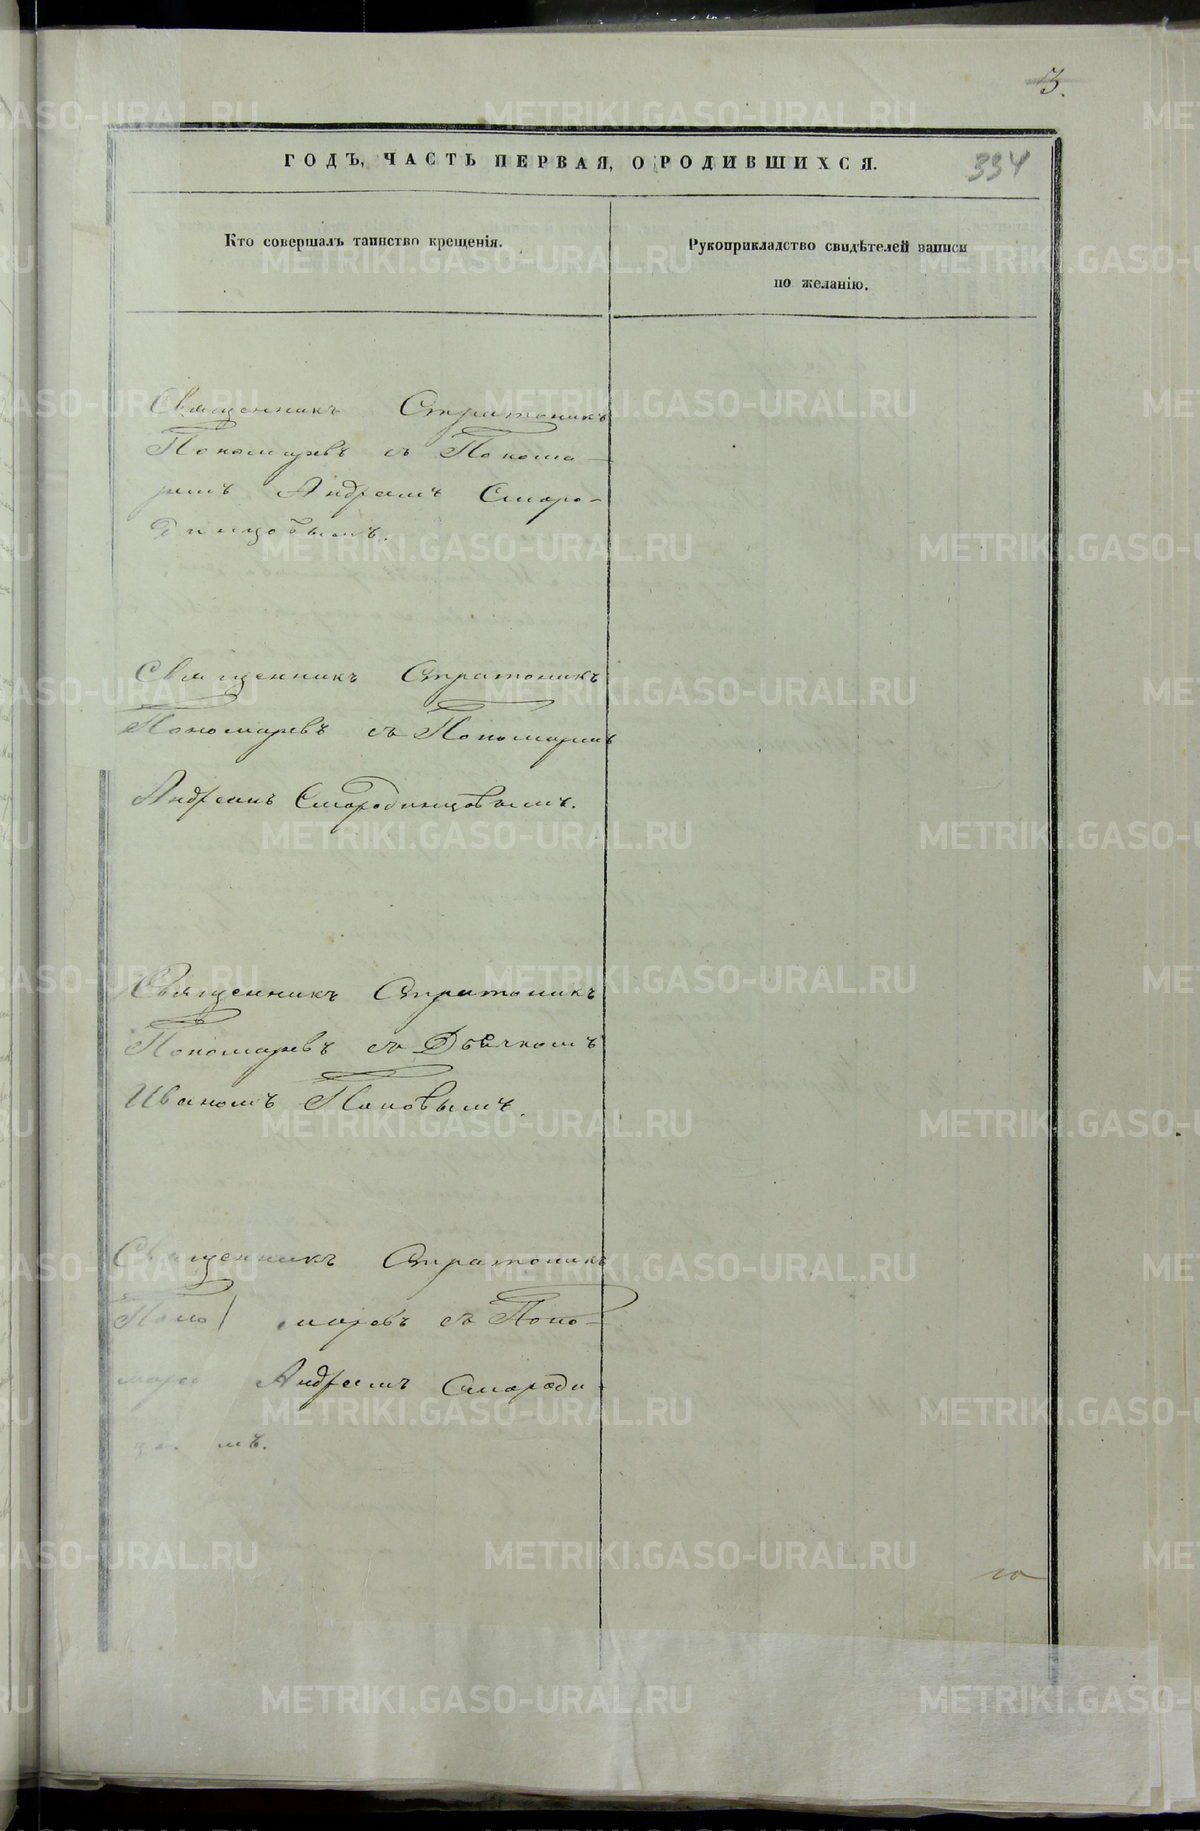 3.
ГОДЪ, ЧАСТЬ ПЕРВАЯ, О РОДИВШИХСЯ.
334
Кто совершалъ таинство крещенія.
Рукоприкладство свидѣтелей записи
по желанію.
Священникъ Стратоникъ
Пономаревъ съ Понома-
ремъ Андреемъ Сморо-
динцовымъ.
Священникъ Стратоникъ
Пономаревъ съ Пономаремъ
Андреемъ Смородинцовымъ.
Священникъ Стратоникъ
Пономаревъ съ Дьячкомъ
Иваномъ Поповымъ.
Священникъ Стратоникъ
Поно маревъ съ Поно-
маре Андреемъ Смороди
цо мъ.
METRIKI.GASO-URAL.RU